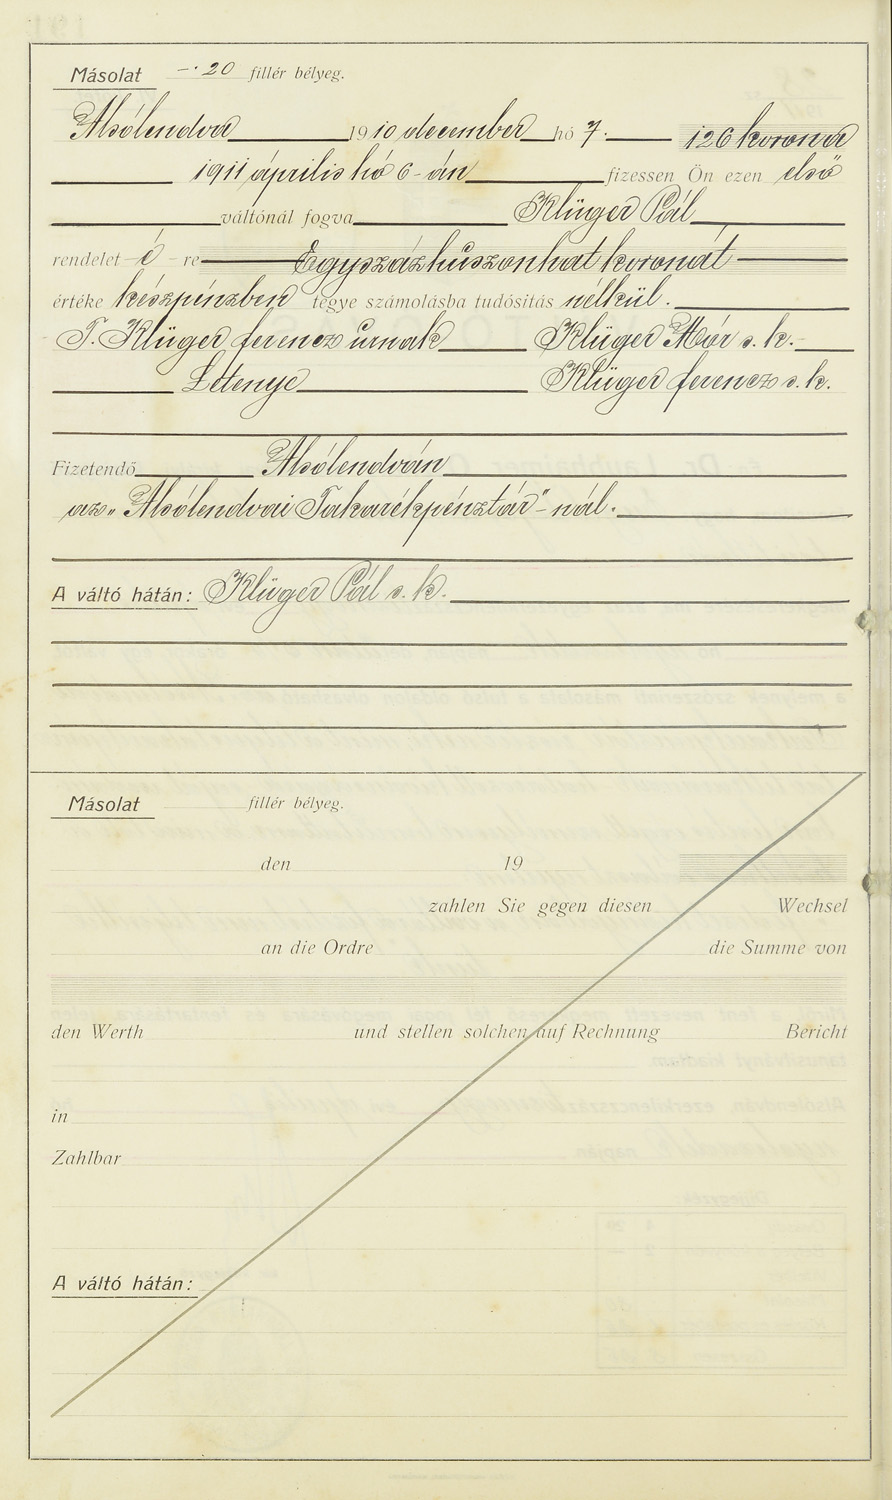 Másolat —·20 fillér bélyeg.
Alsólendva 1910 december hó 7. 126 korona
1911 április hó 6-án fizessen Ön ezen első
váltónál fogva Klüger Pál
rendelet é re Egyszázhuszonhat koronát
értéke készpénzben tegye számolásba tudósítás nélkül.
T. Klüger ferencz úrnak Klüger Mór s. k.
Letenye Klüger ferencz s. k.
Fizetendő Alsólendván
az „Alsólendvai Takarékpénztár"-nál.
A váltó hátán: Klüger Pál s. k.
Másolat fillér bélyeg.
den 19
zahlen Sie gegen diesen Wechsel
an die Ordre die Summe von
den Werth und stellen solchen auf Rechnung Bericht
in
Zahlbar
A váltó hátán: